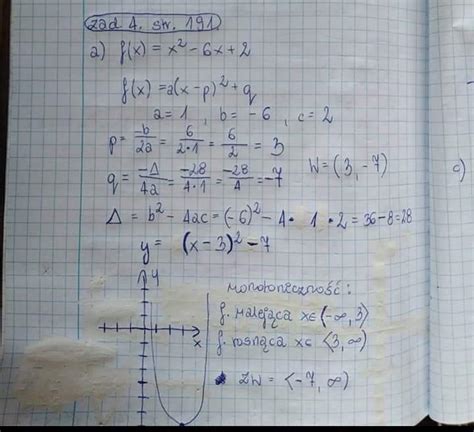 zad 4. str. 191
a) f(x) = x² - 6x + 2
f(x) = a(x-p)² + q
a = 1 , b = -6 , c = 2
p = -b/2a = 6/2·1 = 6/2 = 3
q = -Δ/4a = -28/4·1 = -28/4 = -7
W = (3, -7)
c)
Δ = b² - 4ac = (-6)² - 4· 1 · 2 = 36 - 8 = 28
y = (x - 3)² - 7
y
monotoniczność:
f. malejąca x∈(-∞, 3⟩
x
f. rosnąca x∈ ⟨3, ∞)
ZW = ⟨-7, ∞)